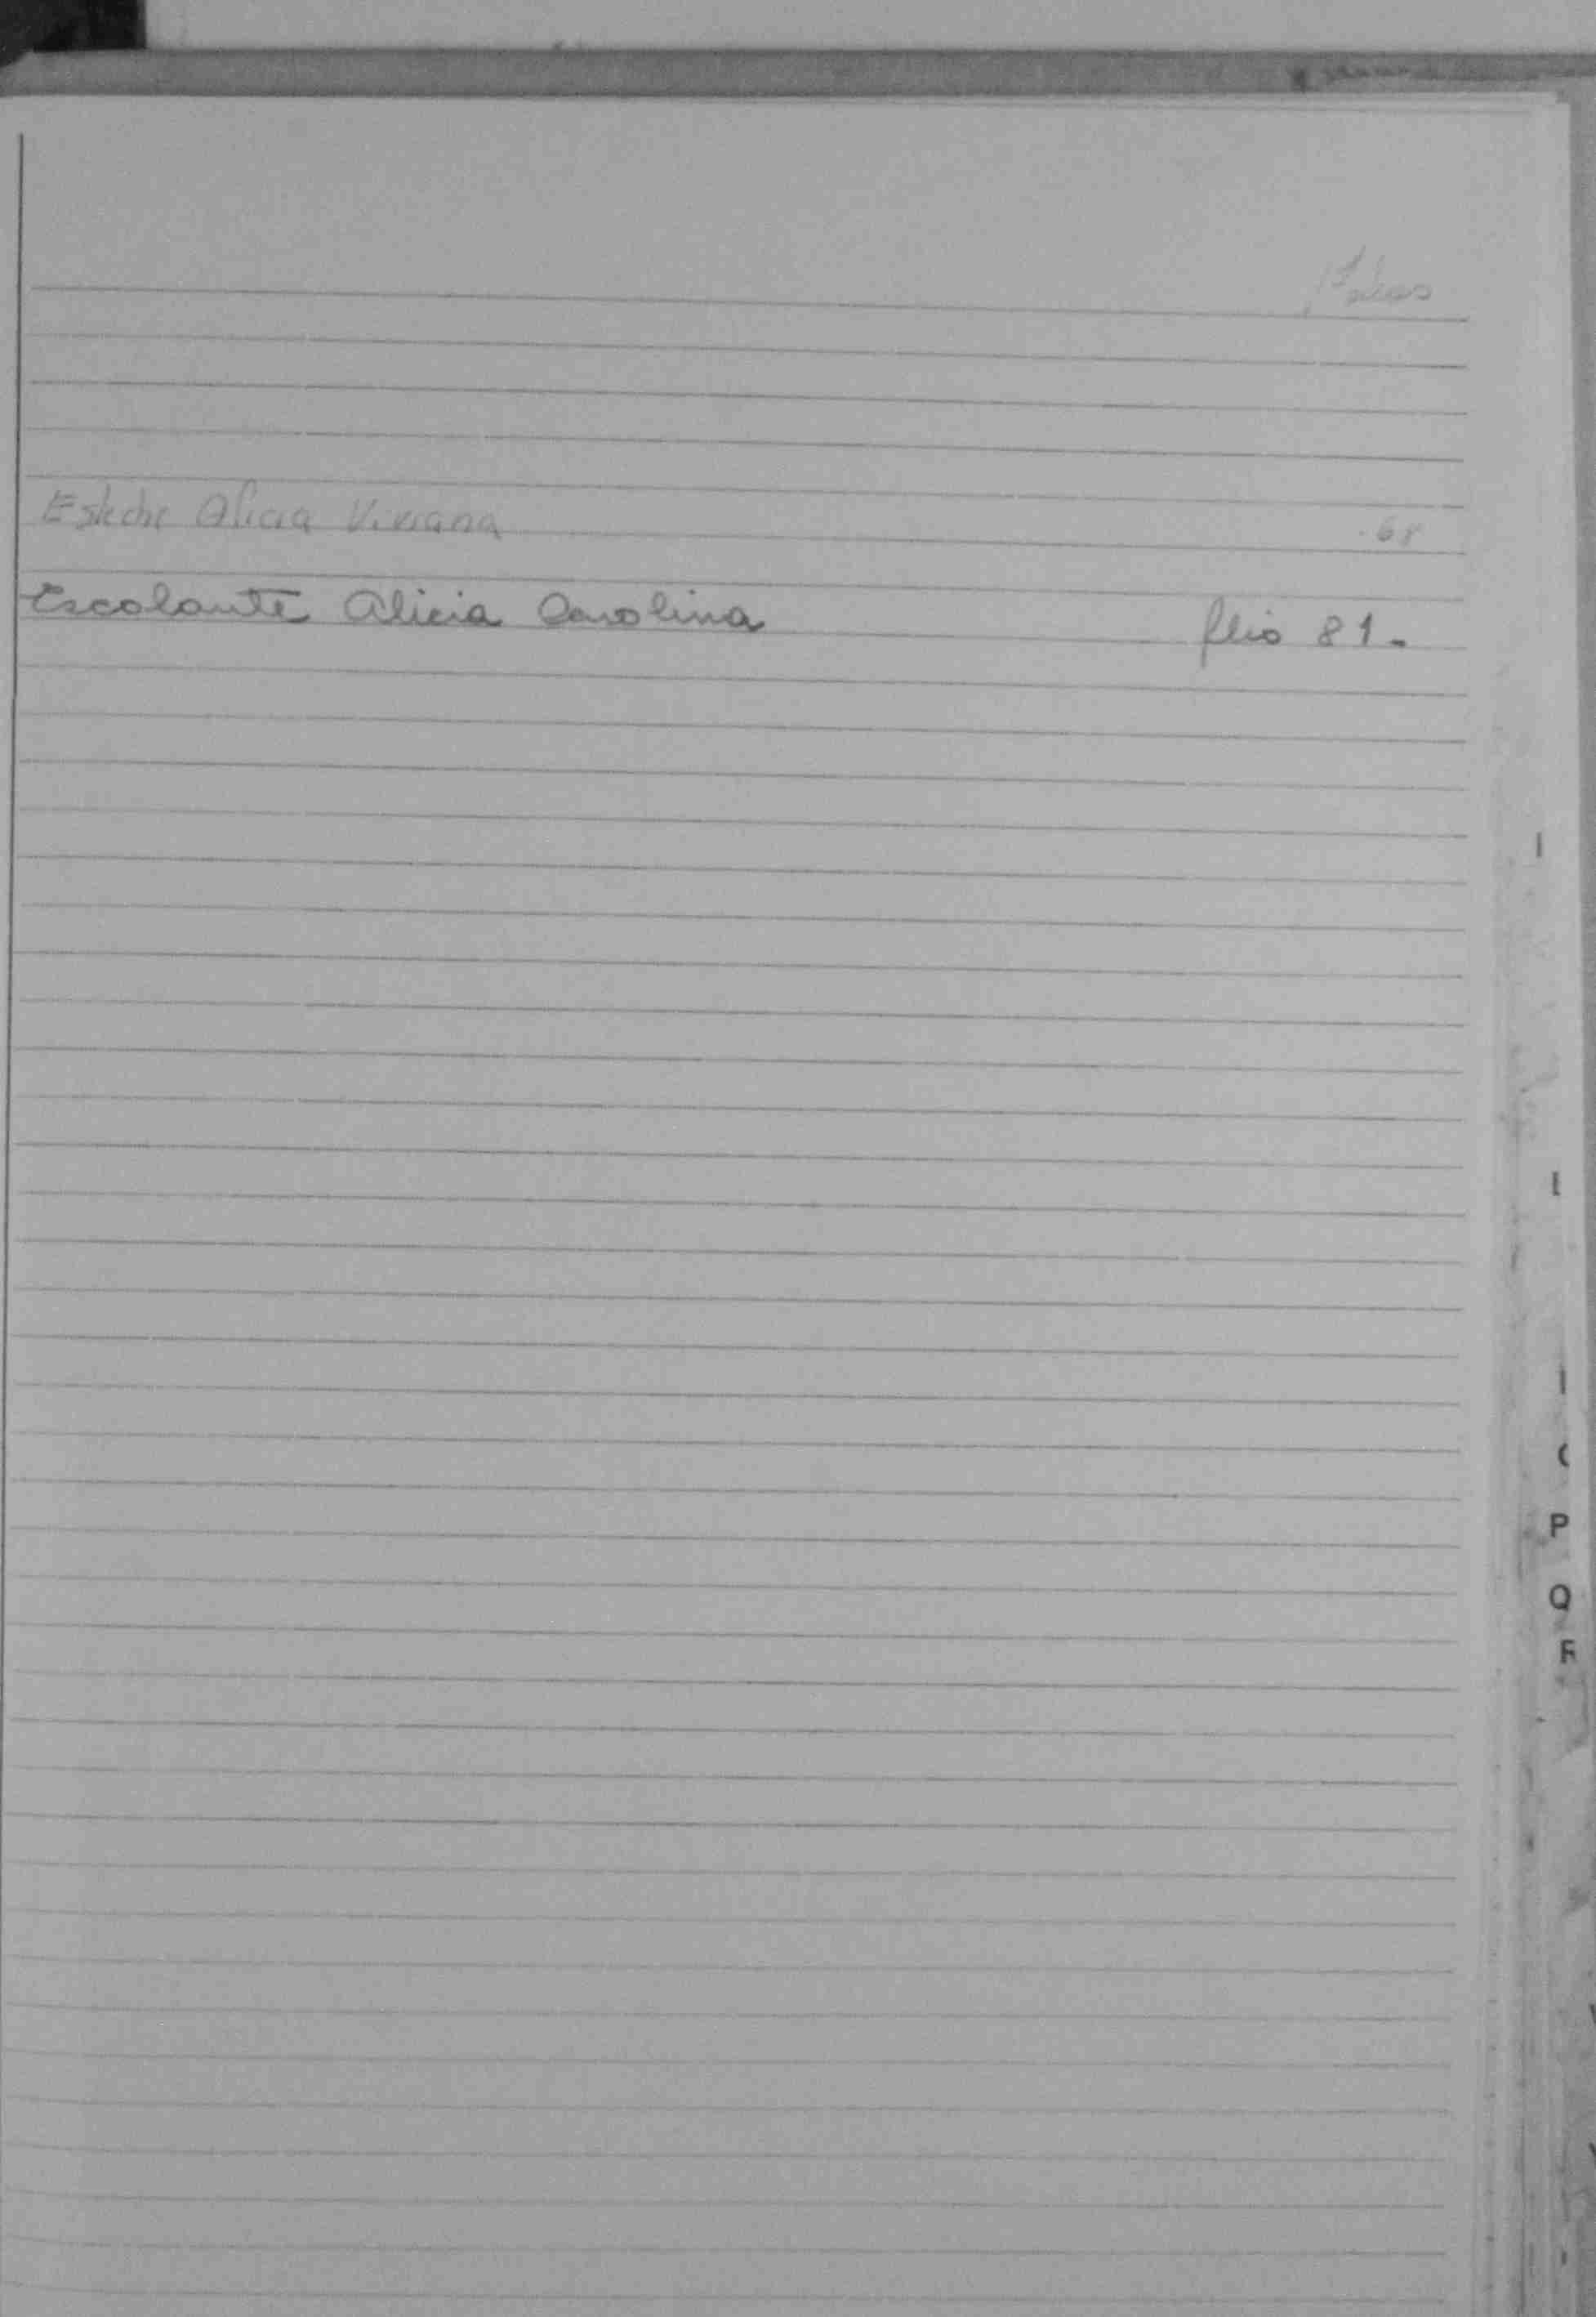 Folios
Esteche Alicia Viviana 68
Escolante Alicia Carolina flio 81.
P
Q
R